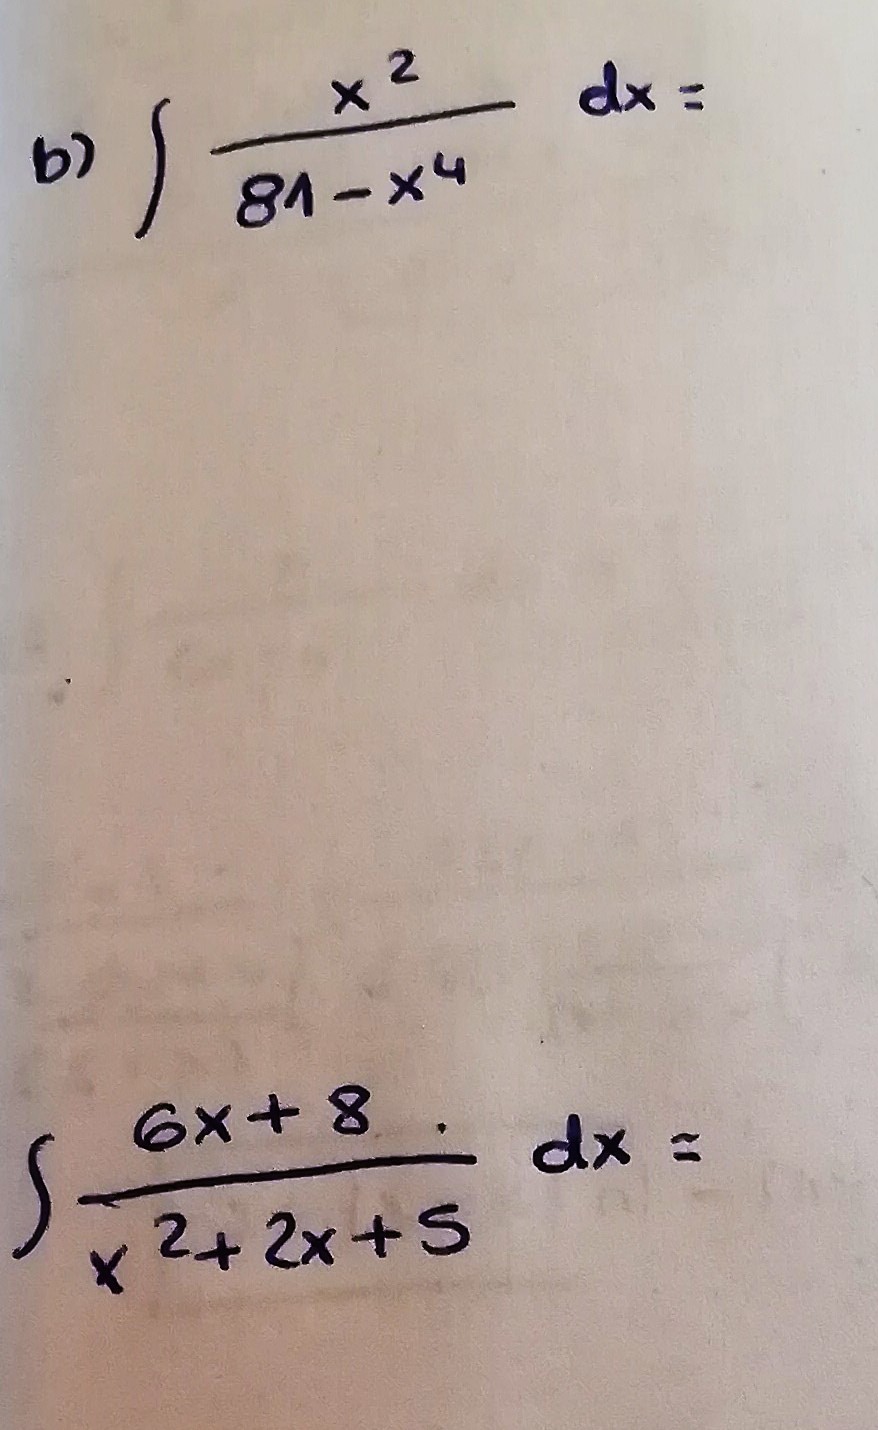 b) ∫ x² / (81 - x⁴) dx =
∫ (6x + 8) / (x² + 2x + 5) dx =